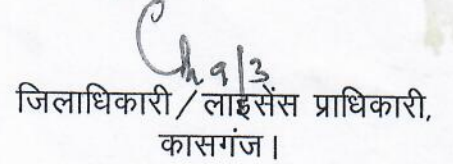 9/3
जिलाधिकारी / लाइसेंस प्राधिकारी,
कासगंज।